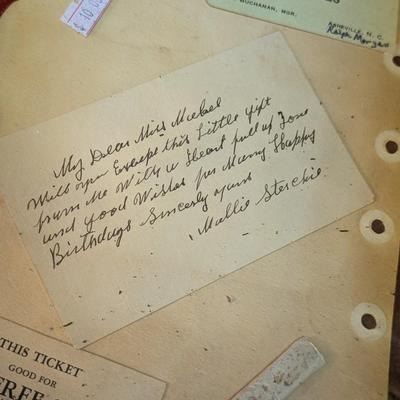 BUCHANAN, MGR.
ASHEVILLE, N. C.
Ralph Morgan
My Dear Miss Mabel
Will you Except this Little gift
from Me With a Heart full of Love
and good Wishes for Many Happy
Birthdays Sincerly yours
Mallie Starckie
THIS TICKET
GOOD FOR
FREE